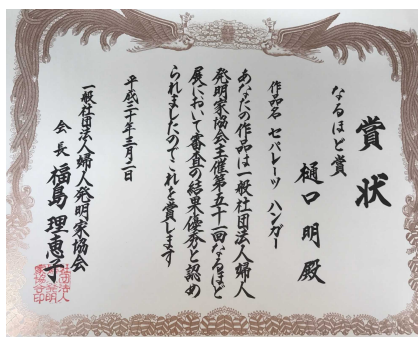 賞状
なるほど賞
樋口明殿
作品名 セパレーツ ハンガー
あなたの作品は一般社団法人婦人
発明家協会主催第五十一回なるほど
展において審査の結果優秀と認め
られましたのでこれを賞します
平成三十年三月二日
一般社団法人婦人発明家協会
会長 福島理恵子